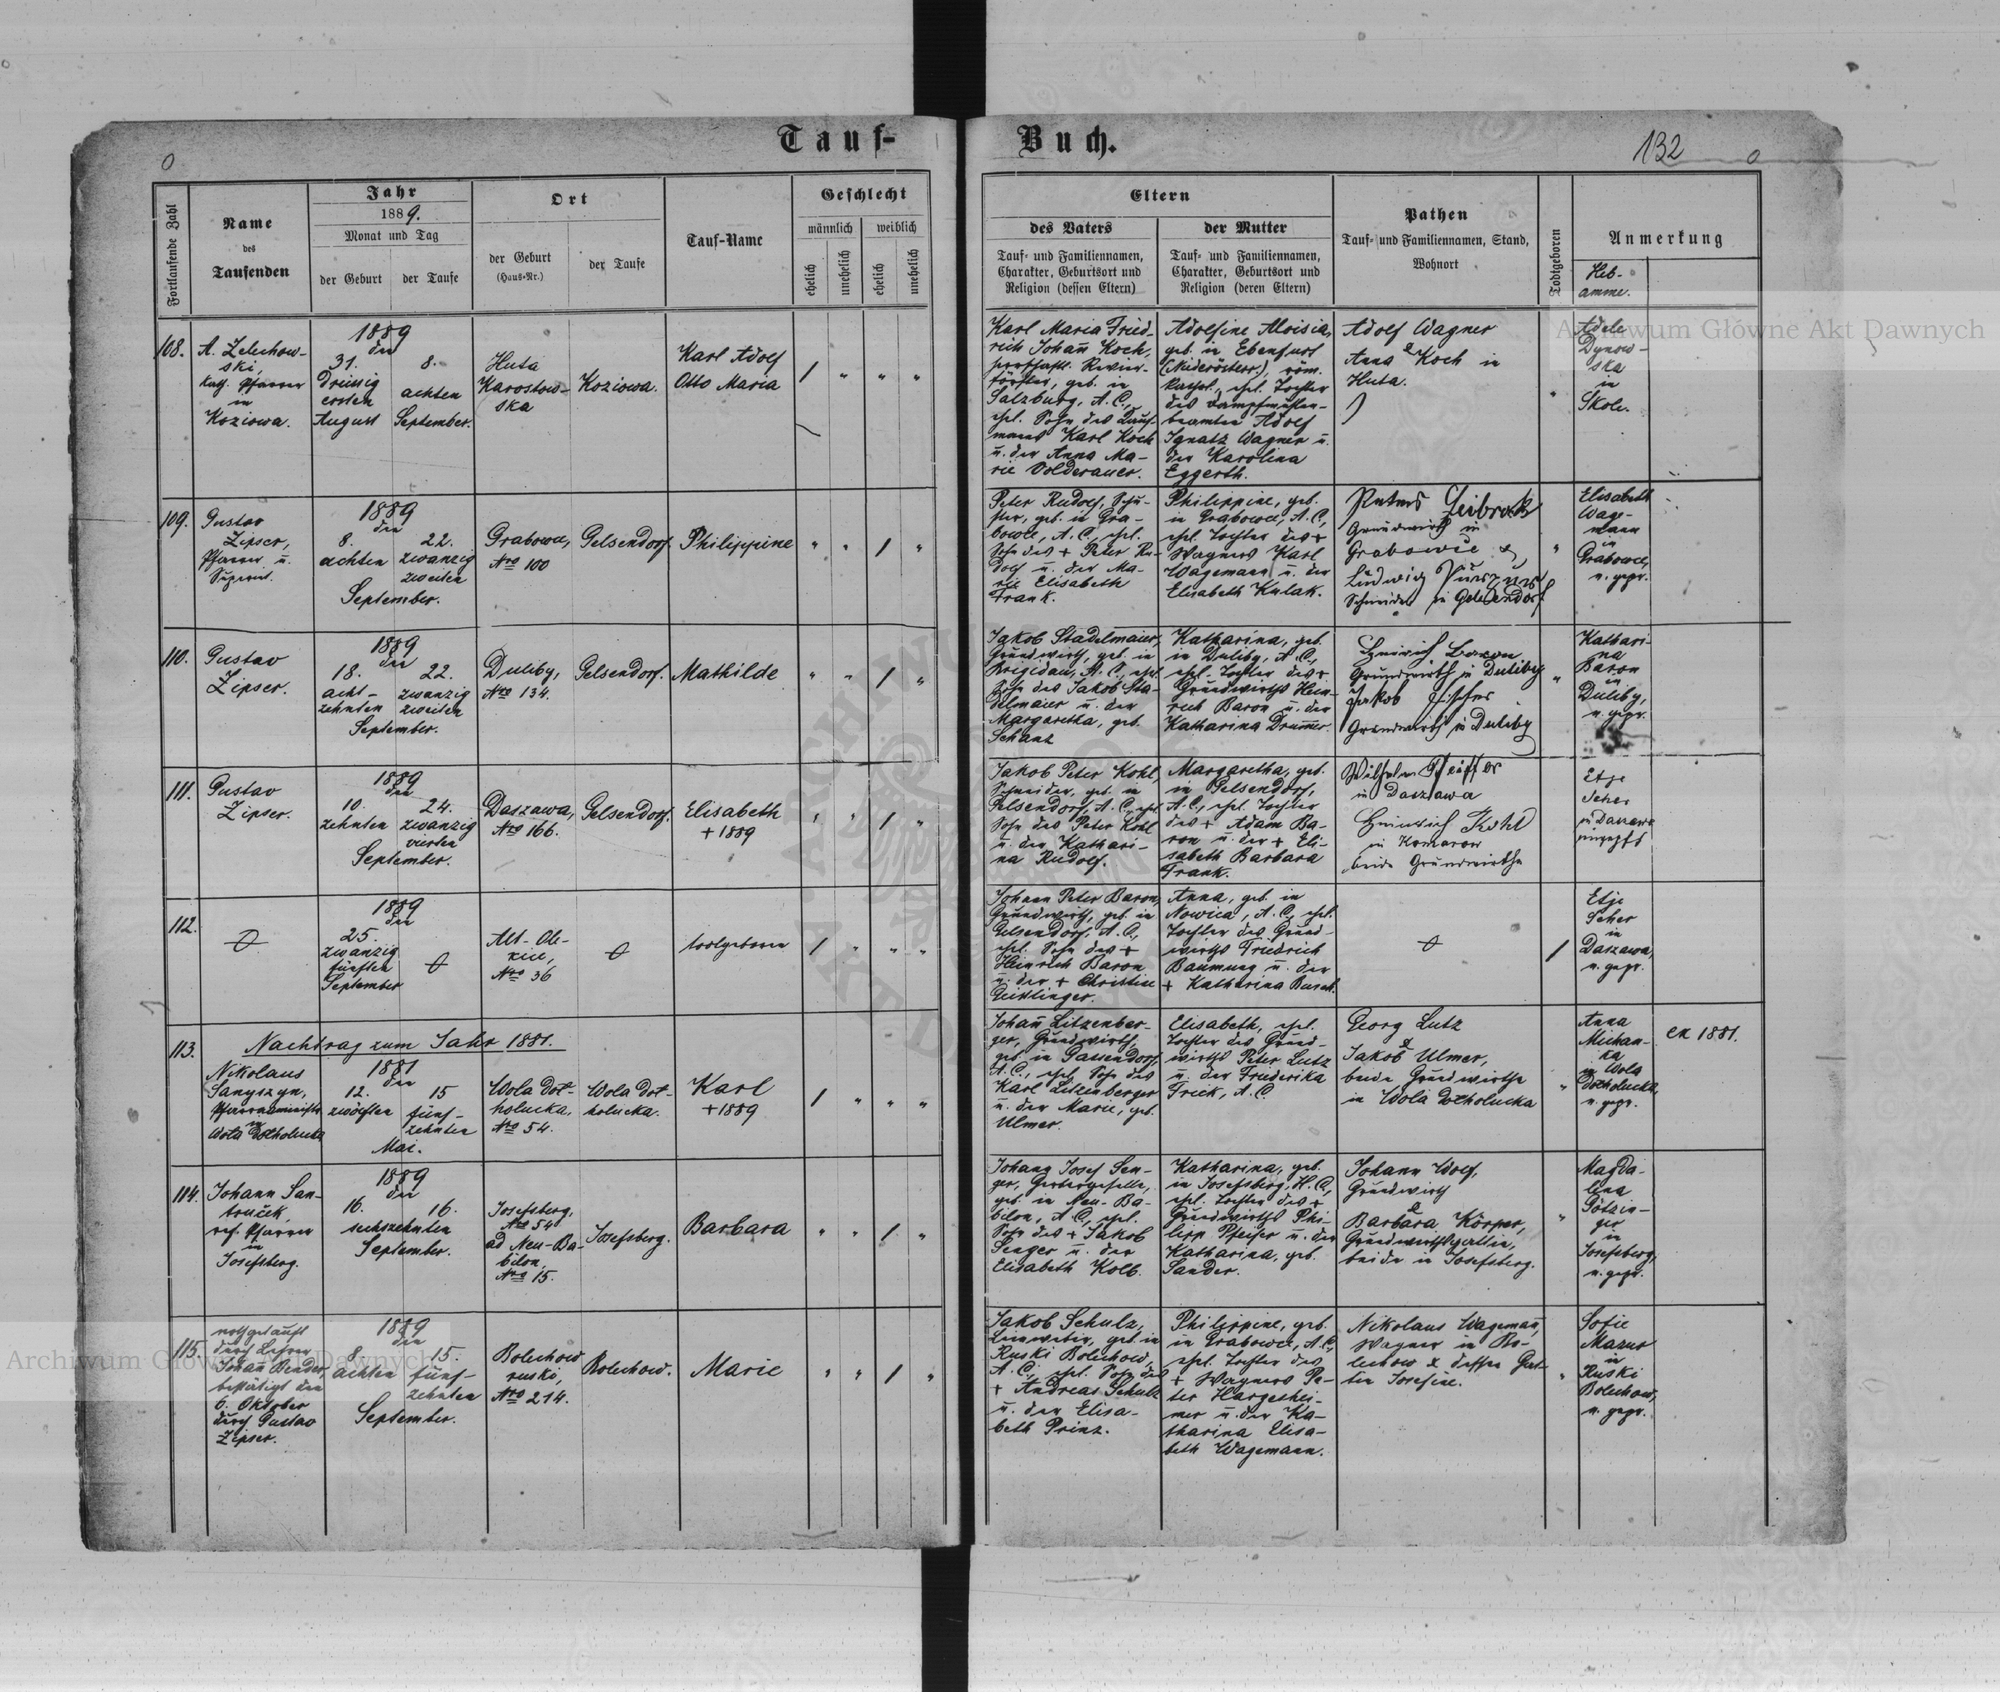 Tauf-
Buch.
132
Fortlaufende Zahl
Name
des
Taufenden
Jahr
1889.
Monat und Tag
der Geburt
der Taufe
Ort
der Geburt
(Haus-Nr.)
der Taufe
Tauf-Name
Geschlecht
männlich
weiblich
ehelich
unehelich
ehelich
unehelich
Eltern
des Vaters
Tauf- und Familiennamen,
Charakter, Geburtsort und
Religion (dessen Eltern)
der Mutter
Tauf- und Familiennamen,
Charakter, Geburtsort und
Religion (deren Eltern)
Pathen
Tauf- und Familiennamen, Stand,
Wohnort
Todtgeboren
Anmerkung
Heb-
amme.
108.
A. Zelechow-
ski,
kath. Pfarrer
in
Koziowa.
1889
den
31.
Dreissig
ersten
August
8.
achten
September.
Huta
Karostow-
ska
Koziowa.
Karl Adolf
Otto Maria
Karl Maria Fried-
rich Johañ Koch,
herrschaftl. Revier-
förster, geb. in
Salzburg, A. C.,
ehel. Sohn des Kauf-
manns Karl Koch
u. der Anna Ma-
rie Volderauer.
Adolfine Aloisia,
geb. in Ebenfurt
(Niederösterr.), röm.
kathol., ehel. Tochter
des Dampfmühlen-
beamten Adolf
Ignatz Wagner u.
der Karolina
Eggerth.
Adolf Wagner
&
Anna Koch in
Huta.
Adele
Dynow-
ska
in
Skole.
109.
Gustav
Zipser,
Pfarrer u.
Superint.
1889
den
8.
achten
22.
zwanzig
zweiten
September.
Grabowce,
Nro 100
Gelsendorf.
Philippine
Peter Rudolf, Schu-
ster, geb. in Gra-
bowce, A. C., ehel.
Sohn des + Peter Ru-
dolf u. der Ma-
rie Elisabeth
Frank.
Philippine, geb.
in Grabowce, A. C.,
ehel. Tochter des +
Wagners Karl
Wagemann u. der
Elisabeth Kulak.
Petrus Leibrock
Grundwirth in
Grabowce &
Ludwig
Schneider in Gelsendorf
Elisabeth
Wage-
mann
in
Grabowce,
u. gepr.
110.
Gustav
Zipser.
1889
den
18.
acht-
zehnten
22.
zwanzig
zweiten
September.
Duliby,
Nro 134.
Gelsendorf.
Mathilde
Jakob Stadelmaier,
Grundwirth, geb. in
Brigidau, A. C., ehel.
Sohn des Jakob Sta-
delmaier u. der
Margaretha, geb.
Schanz
Katharina, geb.
in Duliby, A. C.,
ehel. Tochter des +
Grundwirths Hein-
rich Baron u. der
Katharina Drum̃er.
Heinrich Baron
Grundwirth in Duliby
Jakob Fischer
Grundwirth in Duliby
Kathari-
na
Baron
in
Duliby,
u. gepr.
111.
Gustav
Zipser.
1889
den
10.
zehnten
24.
zwanzig
vierten
September.
Daszawa,
Nro 166.
Gelsendorf.
Elisabeth
+ 1889
Jakob Peter Kohl
Schneider, geb. in
Gelsendorf, A. C., ehel.
Sohn des Peter Kohl
u. der Kathari-
na Rudolf.
Margaretha, geb.
in Gelsendorf,
A. C., ehel. Tochter
des + Adam Ba-
ron u. der + Eli-
sabeth Barbara
Frank.
Wilhelm Pfeiffer
in Daszawa
Heinrich Kohl
in Komarow
beide Grundwirthe
Etje
Seher
in Daszawa
ungepr.
112.
1889
den
25.
zwanzig
fünften
September
Alt-Ole-
xice,
Nro 36
todtgeboren
Johann Peter Baron,
Grundwirth, geb. in
Gelsendorf, A. C.,
ehel. Sohn des +
Heinrich Baron
u. der + Christine
Geiklinger.
Anna, geb. in
Nowica, A. C., ehel.
Tochter des Grund-
wirths Friedrich
Baumung u. der
+ Katharina Busch.
Etje
Seher
in
Daszawa,
u. gepr.
113.
Nachtrag zum Jahr 1881.
Nikolaus
Sanyszyn,
Pfarradministr.
in
Wola Dołholucka
1881
den
12.
zwölften
15
fünf-
zehnten
Mai.
Wola Doł-
holucka,
Nro 54.
Wola Doł-
holucka.
Karl
+ 1889
Johañ Litzenber-
ger, Grundwirth,
geb. in Gassendorf,
A. C., ehel. Sohn des
Karl Litzenberger
u. der Marie, geb.
Ulmer.
Elisabeth, ehel.
Tochter des Grund-
wirths Peter Lutz
u. der Friederika
Frick, A. C.
Georg Lutz
&
Jakob Ulmer,
beide Grundwirthe
in Wola Dołholucka
Anna
Michan-
ka
in Wola
Dołholucka,
u. gepr.
ex 1881.
114.
Johann San-
truček,
ref. Pfarrer
in
Josefsberg.
1889
den
16.
16.
sechszehnten
September.
Josefsberg,
Nro 54
ad Neu-Ba-
bilon,
Nro 15.
Josefsberg.
Barbara
Johann Josef Sen-
ger, Gerbergeselle,
geb. in Neu-Ba-
bilon, A. C., ehel.
Sohn des + Jakob
Senger u. der
Elisabeth Kolb.
Katharina, geb.
in Josefsberg, H. C.,
ehel. Tochter des +
Grundwirths Phi-
lipp Pfeifer u. der
Katharina, geb.
Sander.
Johann Wolf,
Grundwirth
&
Barbara Körper,
Grundwirthsgattin,
beide in Josefsberg.
Magda-
lena
Götzin-
ger
in
Josefsberg,
u. gepr.
115.
nothgetauft
durch Lehrer
Johañ Bender,
bestätigt den
6. Oktober
durch Gustav
Zipser.
1889
den
8.
achten
15.
fünf-
zehnten
September.
Bolechow
ruski,
Nro 214.
Bolechow.
Marie
Jakob Schulz,
Leinweber, geb. in
Ruski Bolechow,
A. C., ehel. Sohn des
+ Andreas Schulz
u. der Elisa-
beth Prinz.
Philippine, geb.
in Grabowce, A. C.,
ehel. Tochter des
+ Wagners Pe-
ter Hargeshei-
mer u. der Ka-
tharina Elisa-
beth Wagemann.
Nikolaus Wagemañ,
Wagner in Bo-
lechow & dessen Gat-
tin Josefine.
Sofie
Mazur
in
Ruski
Bolechow,
u. gepr.
Archiwum Główne Akt Dawnych
Archiwum Główne Akt Dawnych